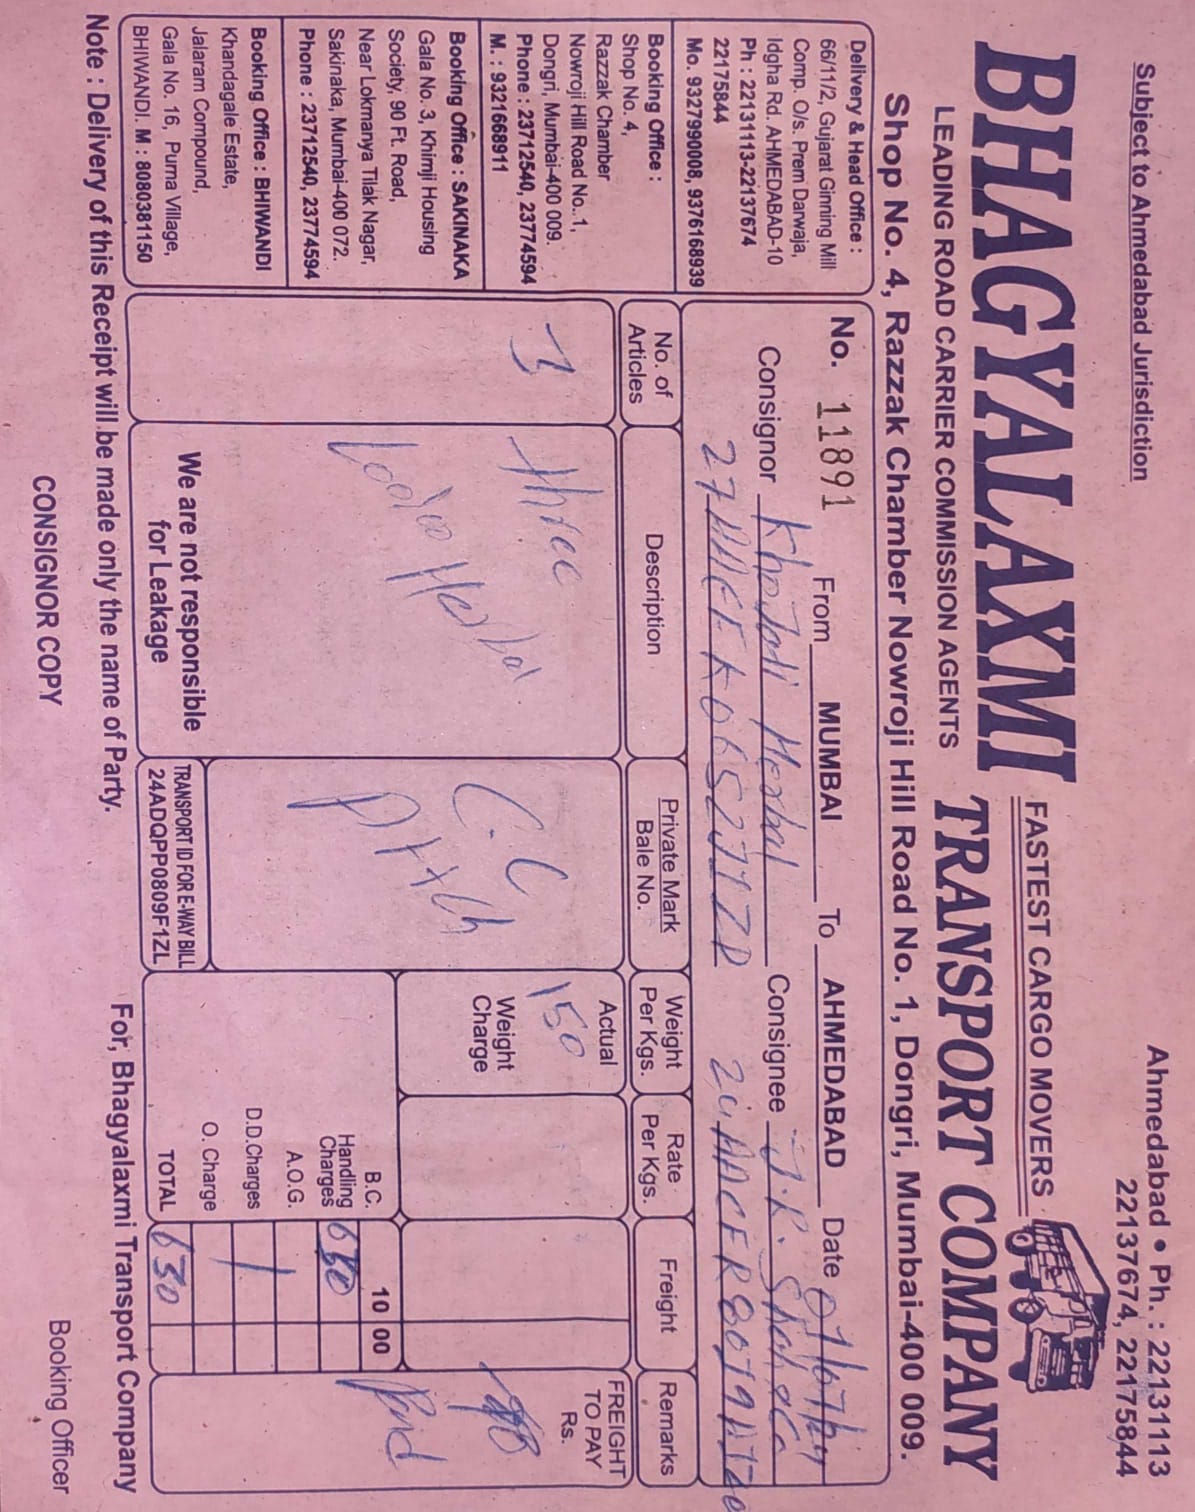 Subject to Ahmedabad Jurisdiction
Ahmedabad • Ph. : 22131113
22137674, 22175844
BHAGYALAXMI TRANSPORT COMPANY
FASTEST CARGO MOVERS
LEADING ROAD CARRIER COMMISSION AGENTS
Shop No. 4, Razzak Chamber Nowroji Hill Road No. 1, Dongri, Mumbai-400 009.
Delivery & Head Office :
66/11/2, Gujarat Ginning Mill
Comp. O/s. Prem Darwaja,
Idgha Rd. AHMEDABAD-10
Ph : 22131113-22137674
22175844
Mo. 9327990008, 9376168939
Booking Office :
Shop No. 4,
Razzak Chamber
Nowroji Hill Road No. 1,
Dongri, Mumbai-400 009.
Phone : 23712540, 23774594
M. : 9321668911
Booking Office : SAKINAKA
Gala No. 3, Khimji Housing
Society, 90 Ft. Road,
Near Lokmanya Tilak Nagar,
Sakinaka, Mumbai-400 072.
Phone : 23712540, 23774594
Booking Office : BHIWANDI
Khandagale Estate,
Jalaram Compound,
Gala No. 16, Purna Village,
BHIWANDI. M : 8080381150
No. 11891 From MUMBAI To AHMEDABAD Date
Consignor Herbal Consignee J.R. Shah
No. of Articles
Description
Private Mark
Bale No.
Weight Per Kgs.
Rate Per Kgs.
Freight
Remarks
3
Three
Herbal
C.C
Actual
150
Weight Charge
FREIGHT TO PAY Rs.
Paid
B.C. 10 00
Handling Charges
A.O.G.
D.D.Charges
O. Charge
TOTAL 630
We are not responsible for Leakage
TRANSPORT ID FOR E-WAY BILL
24ADQPP0809F1ZL
Note : Delivery of this Receipt will be made only the name of Party.
For, Bhagyalaxmi Transport Company
CONSIGNOR COPY
Booking Officer